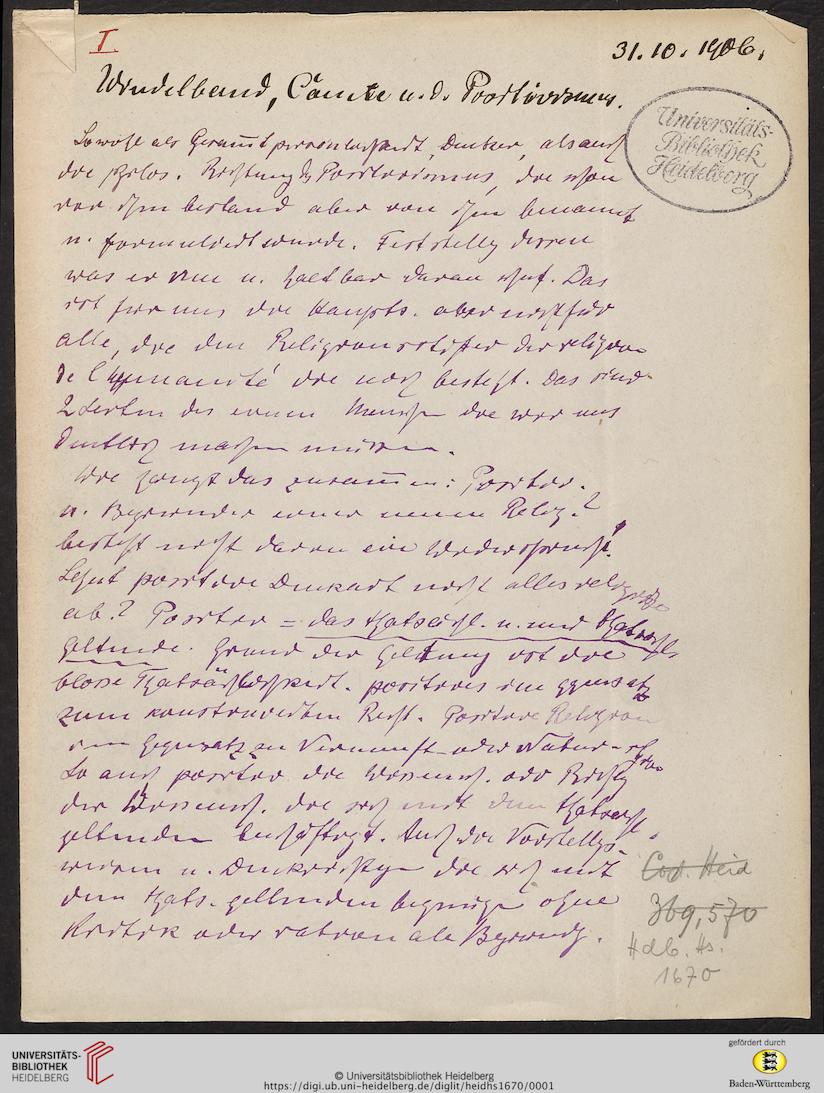 I
31.10.1906.
Windelband, Comte u. d. Positivismus.
Universitäts-
Bibliothek
Heidelberg
Sowohl als Gesamtpersönlichkeit, Denker, als auch
die philos. Richtung d. Positivismus, die schon
vor ihm bestand aber von ihm benannt
u. formuliert wurde. Feststellg dessen
was er neu u. haltbar daran schuf. Das
ist für uns die Haupts. aber nicht für
alle, die den Religionsstifter der religion
de l'humanité die noch besteht. Das sind
2 Seiten des einen Menschen die wir uns
deutlich machen müssen.
Wie hängt das zusammen: Positiv.
u. Begründer einer neuen Relig.?
besteht nicht darin ein Widerspruch?
Lehnt positive Denkart nicht alles religiöse
ab? Positiv = das thatsächl. u. nur thatsächl.
geltende. Grund der Geltung ist die
blosse Thatsächlichkeit. positives im ggensatz
zum konstruierten Recht. Positive Religion
im Gegensatz zu Vernunft- oder Natur-
So auch positiv die Wissensch. od. Richtg
der Wissensch. die sich mit dem thatsächl.
geltenden beschäftigt. Auch die Vorstellgs-
weisen u. die sich mit
dem thats. geltenden begnügen ohne
Kritik oder rationale Begründg.
Cod. Heid
369,570
Hdlb. Hs.
1670
UNIVERSITÄTS-
BIBLIOTHEK
HEIDELBERG
© Universitätsbibliothek Heidelberg
https://digi.ub.uni-heidelberg.de/diglit/heidhs1670/0001
gefördert durch
Baden-Württemberg